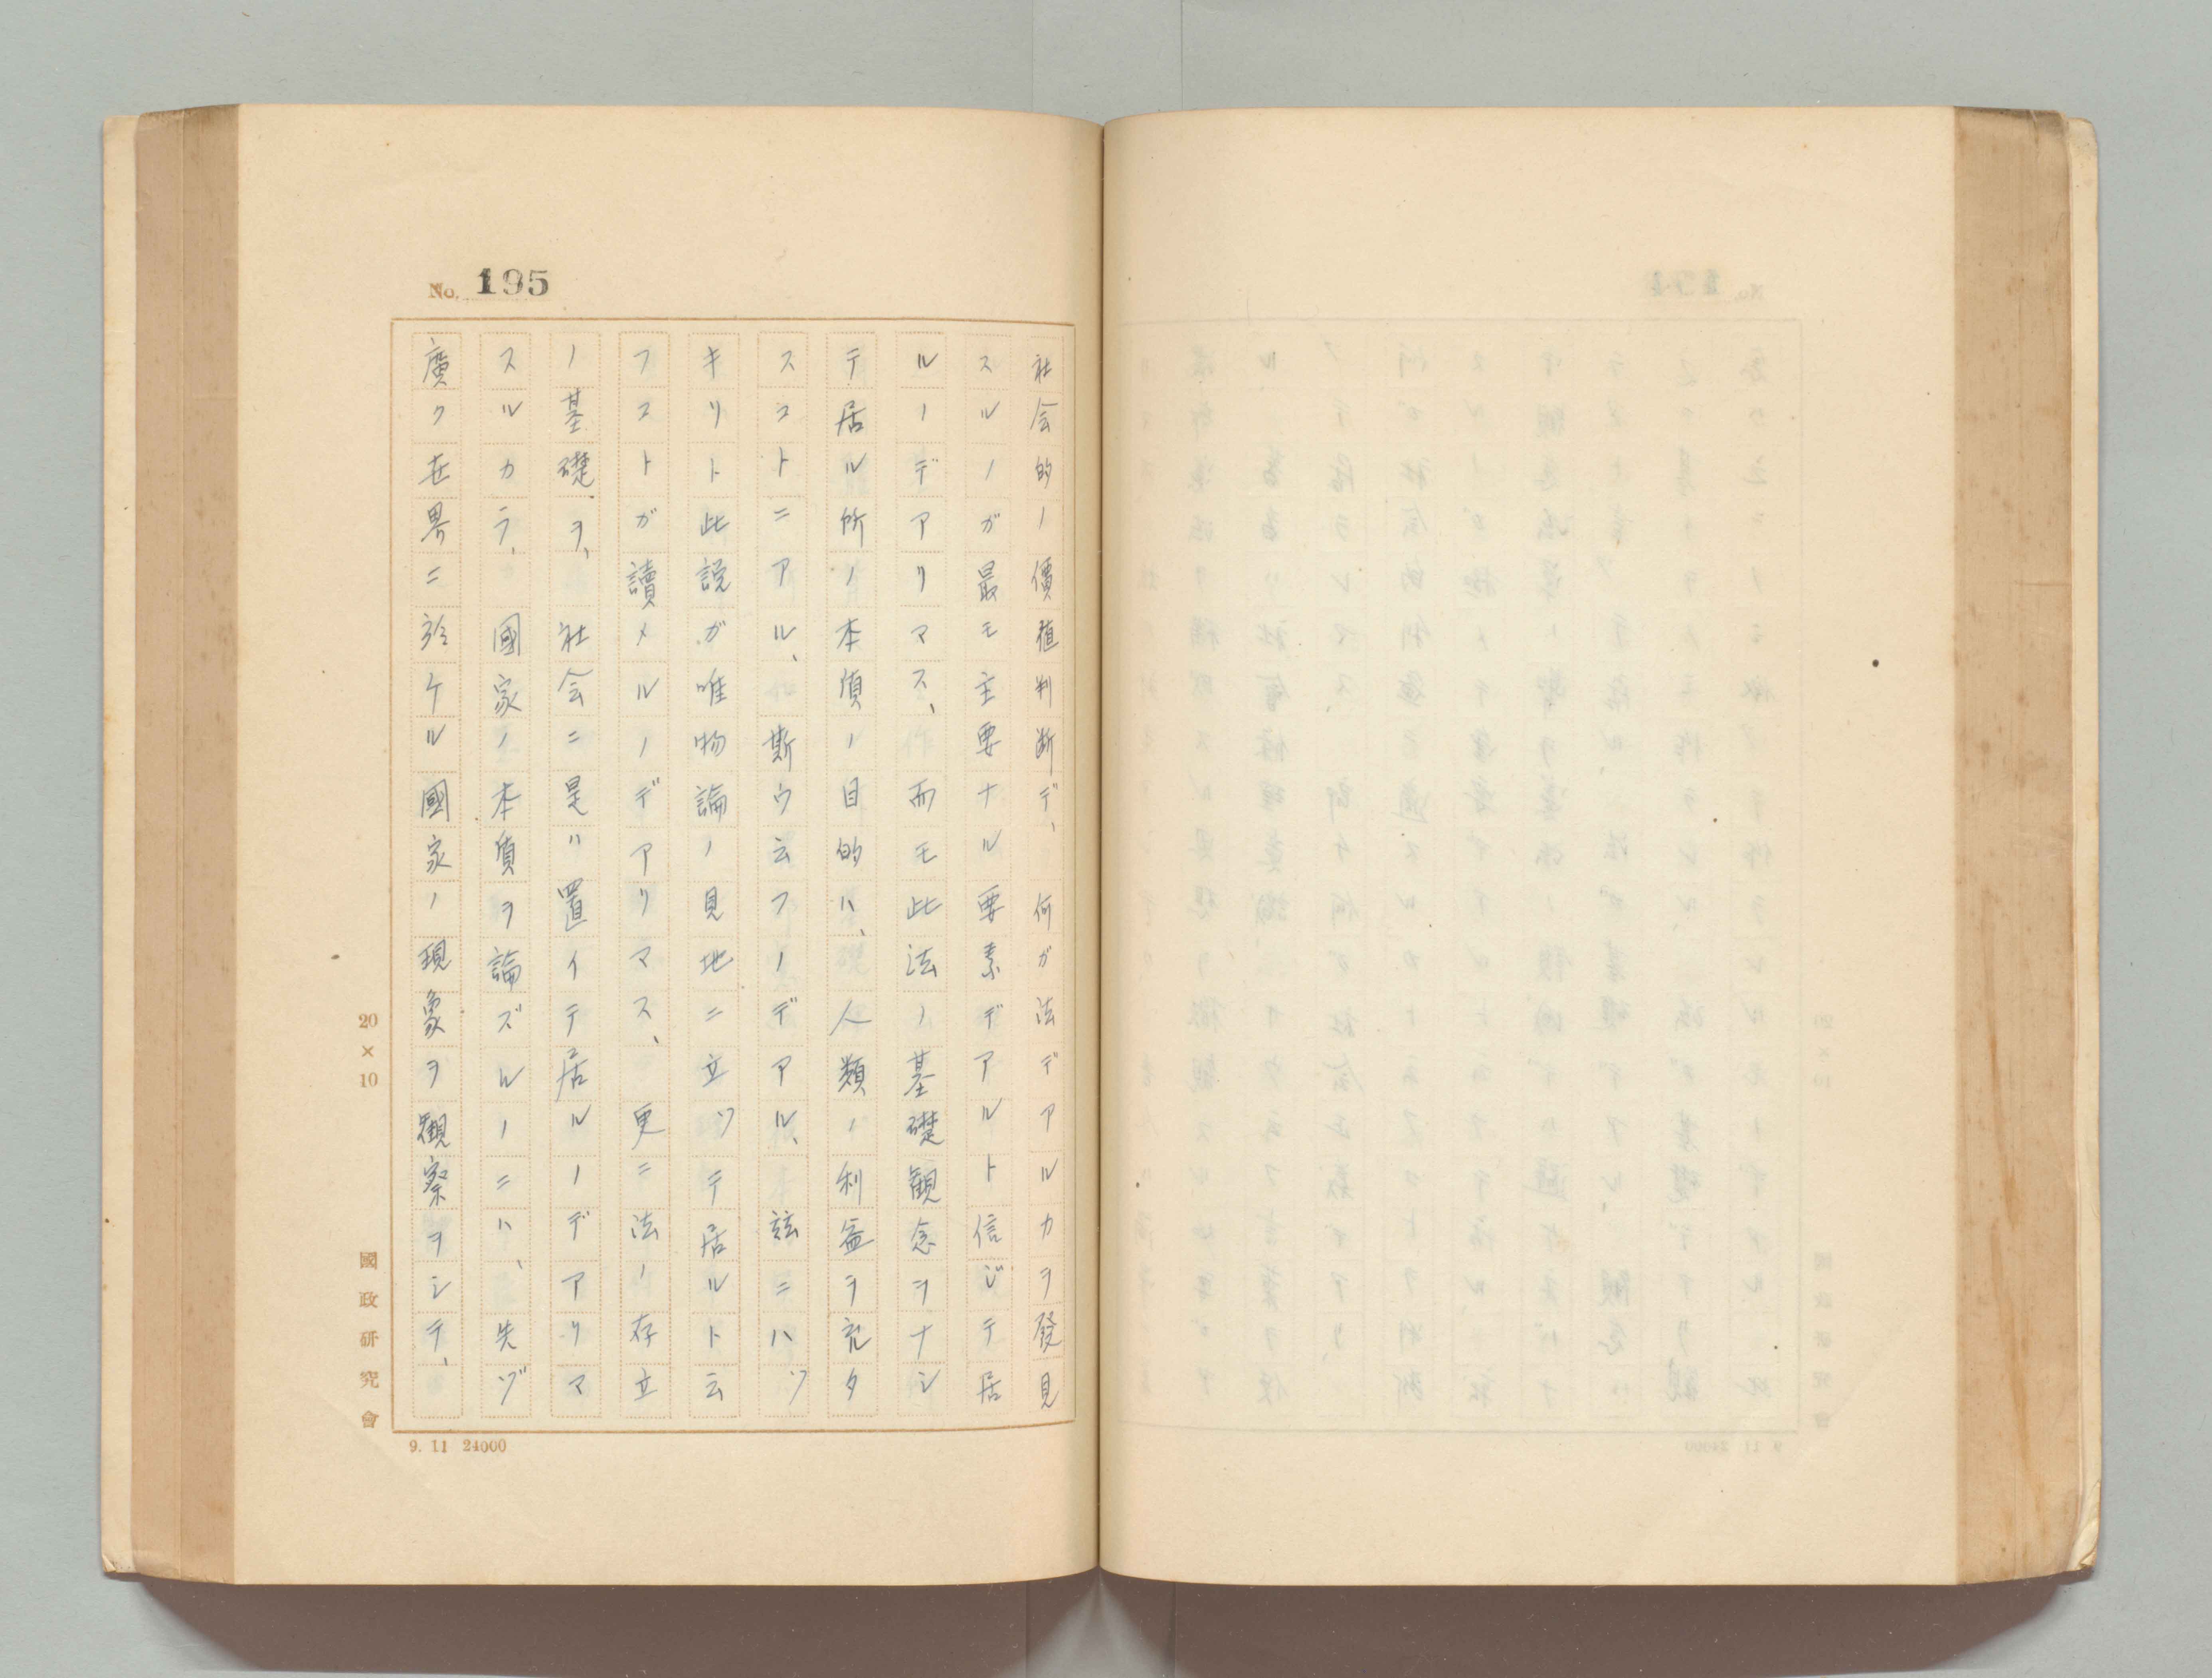 No. 195
社会的ノ價値判断デ、何ガ法デアルカヲ發見
スルノガ最モ主要ナル要素デアルト信ジテ居
ルノデアリマス、而モ此法ノ基礎観念ヲナシ
テ居ル所ノ本質ノ目的ハ、人類ノ利益ヲ充タ
スコトニアル、斯ウ云フノデアル、玆ニハツ
キリト此説ガ唯物論ノ見地ニ立ツテ居ルト云
フコトガ讀メルノデアリマス、更ニ法ノ存立
ノ基礎ヲ、社会ニ是ハ置イテ居ルノデアリマ
スルカラ、國家ノ本質ヲ論ズルノニハ、先ヅ
廣ク世界ニ於ケル國家ノ現象ヲ観察ヲシテ、
20×10
國政研究會
9. 11 24000